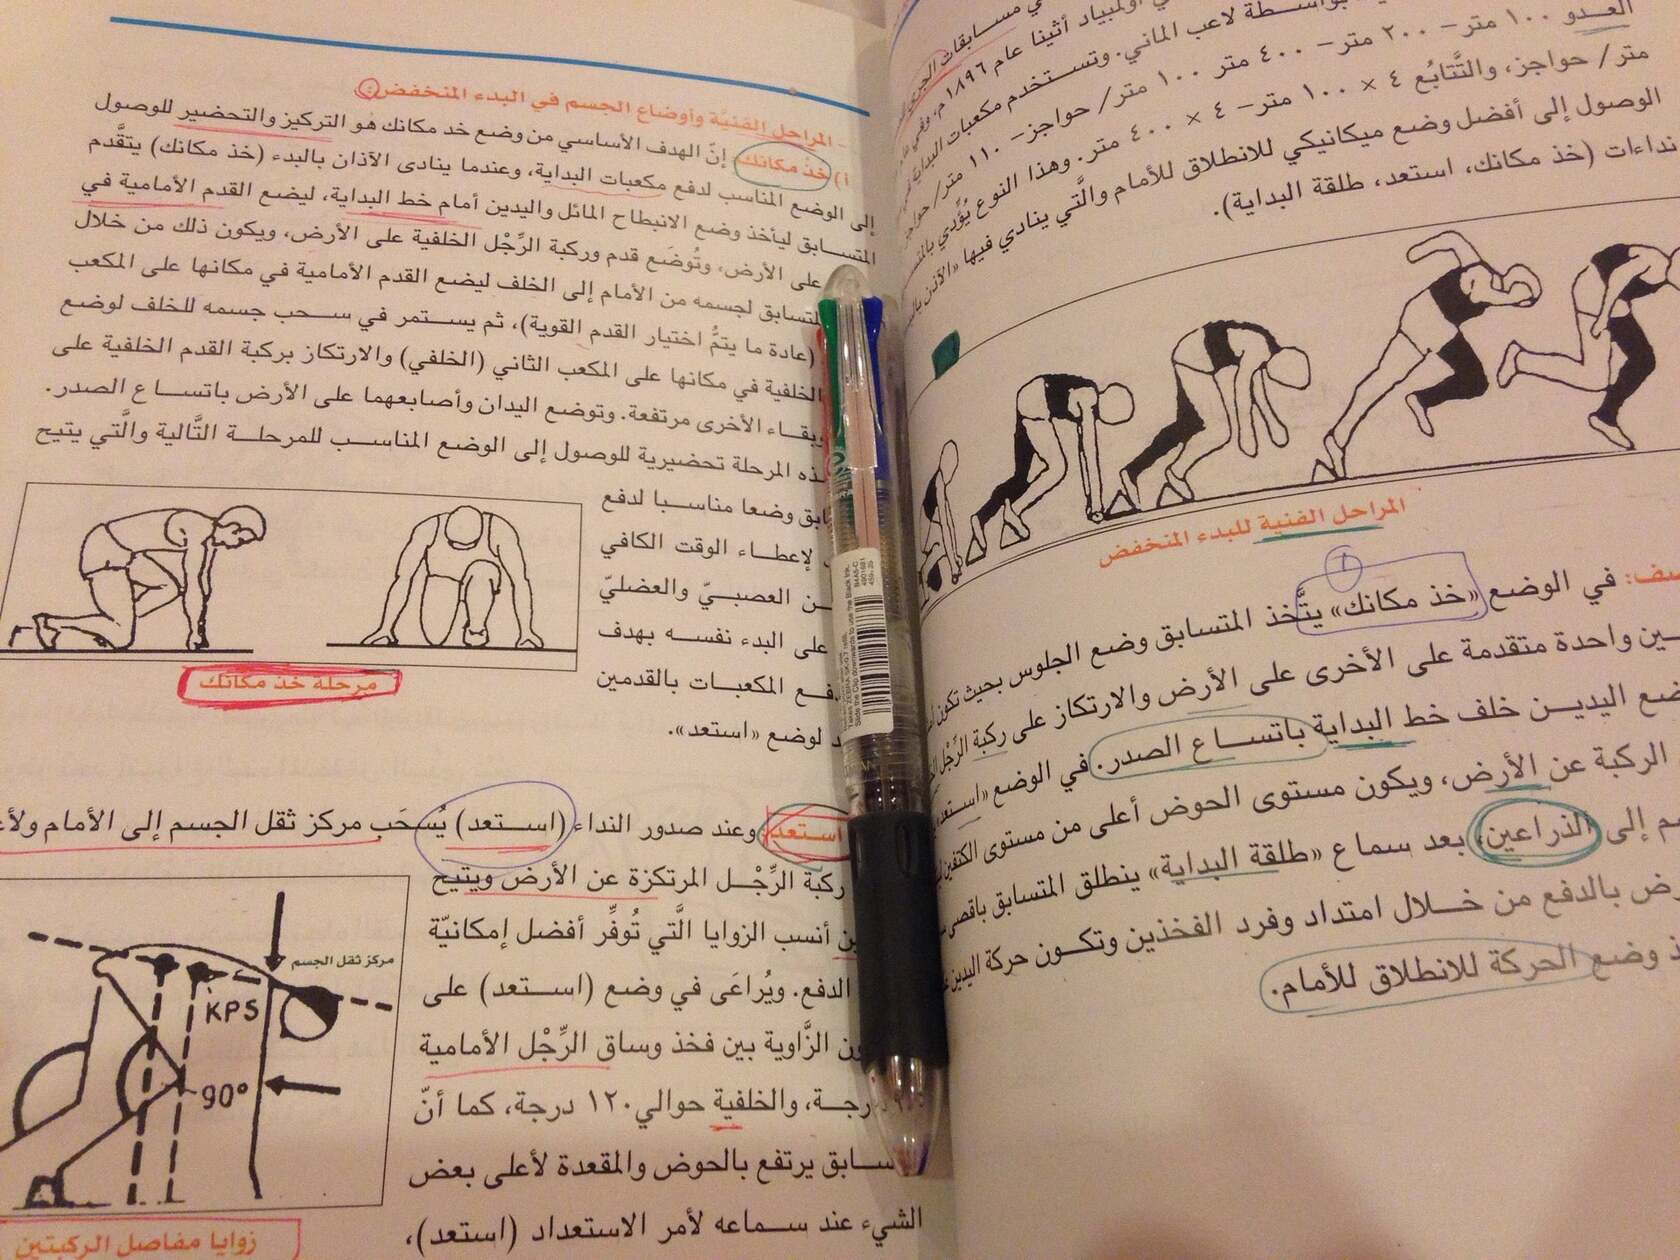 في مسابقات الجري
أولمبياد أثينا عام ١٨٩٦م، وفي
بواسطة لاعب الماني. وتستخدم مكعبات البداية في
العدو ١٠٠ متر – ٢٠٠ متر – ٤٠٠ متر ١٠٠ متر/ حواجز – ١١٠ متر/ حواجز
متر/ حواجز، والتَّتابُع ٤ × ١٠٠ متر – ٤ × ٤٠٠ متر. وهذا النوع يُؤدِّي بالمتسابق
الوصول إلى أفضل وضع ميكانيكي للانطلاق للأمام والَّتي ينادي فيها «الآذن بالبدء»
نداءات (خذ مكانك، استعد، طلقة البداية).
المراحل الفنية للبدء المنخفض
في الوضع «خذ مكانك» يتَّخذ المتسابق وضع الجلوس بحيث تكون
واحدة متقدمة على الأخرى على الأرض والارتكاز على ركبة الرِّجْل
اليدين خلف خط البداية باتساع الصدر. في الوضع «استعد»
الركبة عن الأرض، ويكون مستوى الحوض أعلى من مستوى الكتفين
إلى الذراعين، بعد سماع «طلقة البداية» ينطلق المتسابق بأقصى
بالدفع من خلال امتداد وفرد الفخذين وتكون حركة اليدين
وضع الحركة للانطلاق للأمام.
- المراحل الفنيَّة وأوضاع الجسم في البدء المنخفض:
أ) خذ مكانك: إنّ الهدف الأساسي من وضع خد مكانك هو التركيز والتحضير للوصول
إلى الوضع المناسب لدفع مكعبات البداية، وعندما ينادى الآذان بالبدء (خذ مكانك) يتقَّدم
المتسابق ليأخذ وضع الانبطاح المائل واليدين أمام خط البداية، ليضع القدم الأمامية في
على الأرض، وتُوضَع قدم وركبة الرِّجْل الخلفية على الأرض، ويكون ذلك من خلال
لجسمه من الأمام إلى الخلف ليضع القدم الأمامية في مكانها على المكعب
(عادة ما يتمُّ اختيار القدم القوية)، ثم يستمر في سحب جسمه للخلف لوضع
الخلفية في مكانها على المكعب الثاني (الخلفي) والارتكاز بركبة القدم الخلفية على
وبقاء الأخرى مرتفعة. وتوضع اليدان وأصابعهما على الأرض باتساع الصدر.
المرحلة تحضيرية للوصول إلى الوضع المناسب للمرحلة التَّالية والَّتي يتيح
وضعا مناسبا لدفع
لإعطاء الوقت الكافي
العصبيّ والعضليّ
على البدء نفسه بهدف
المكعبات بالقدمين
لوضع «استعد».
مرحلة خذ مكانك
استعد: وعند صدور النداء (استعد) يُسحَب مركز ثقل الجسم إلى الأمام
ركبة الرِّجْل المرتكزة عن الأرض ويتيح
أنسب الزوايا الَّتي تُوفِّر أفضل إمكانيّة
الدفع. ويُراعَى في وضع (استعد) على
الزَّاوية بين فخذ وساق الرِّجْل الأمامية
درجة، والخلفية حوالي ١٢٠ درجة، كما أنّ
يرتفع بالحوض والمقعدة لأعلى بعض
الشيء عند سماعه لأمر الاستعداد (استعد)،
مركز ثقل الجسم
KPS
90°
زوايا مفاصل الركبتين